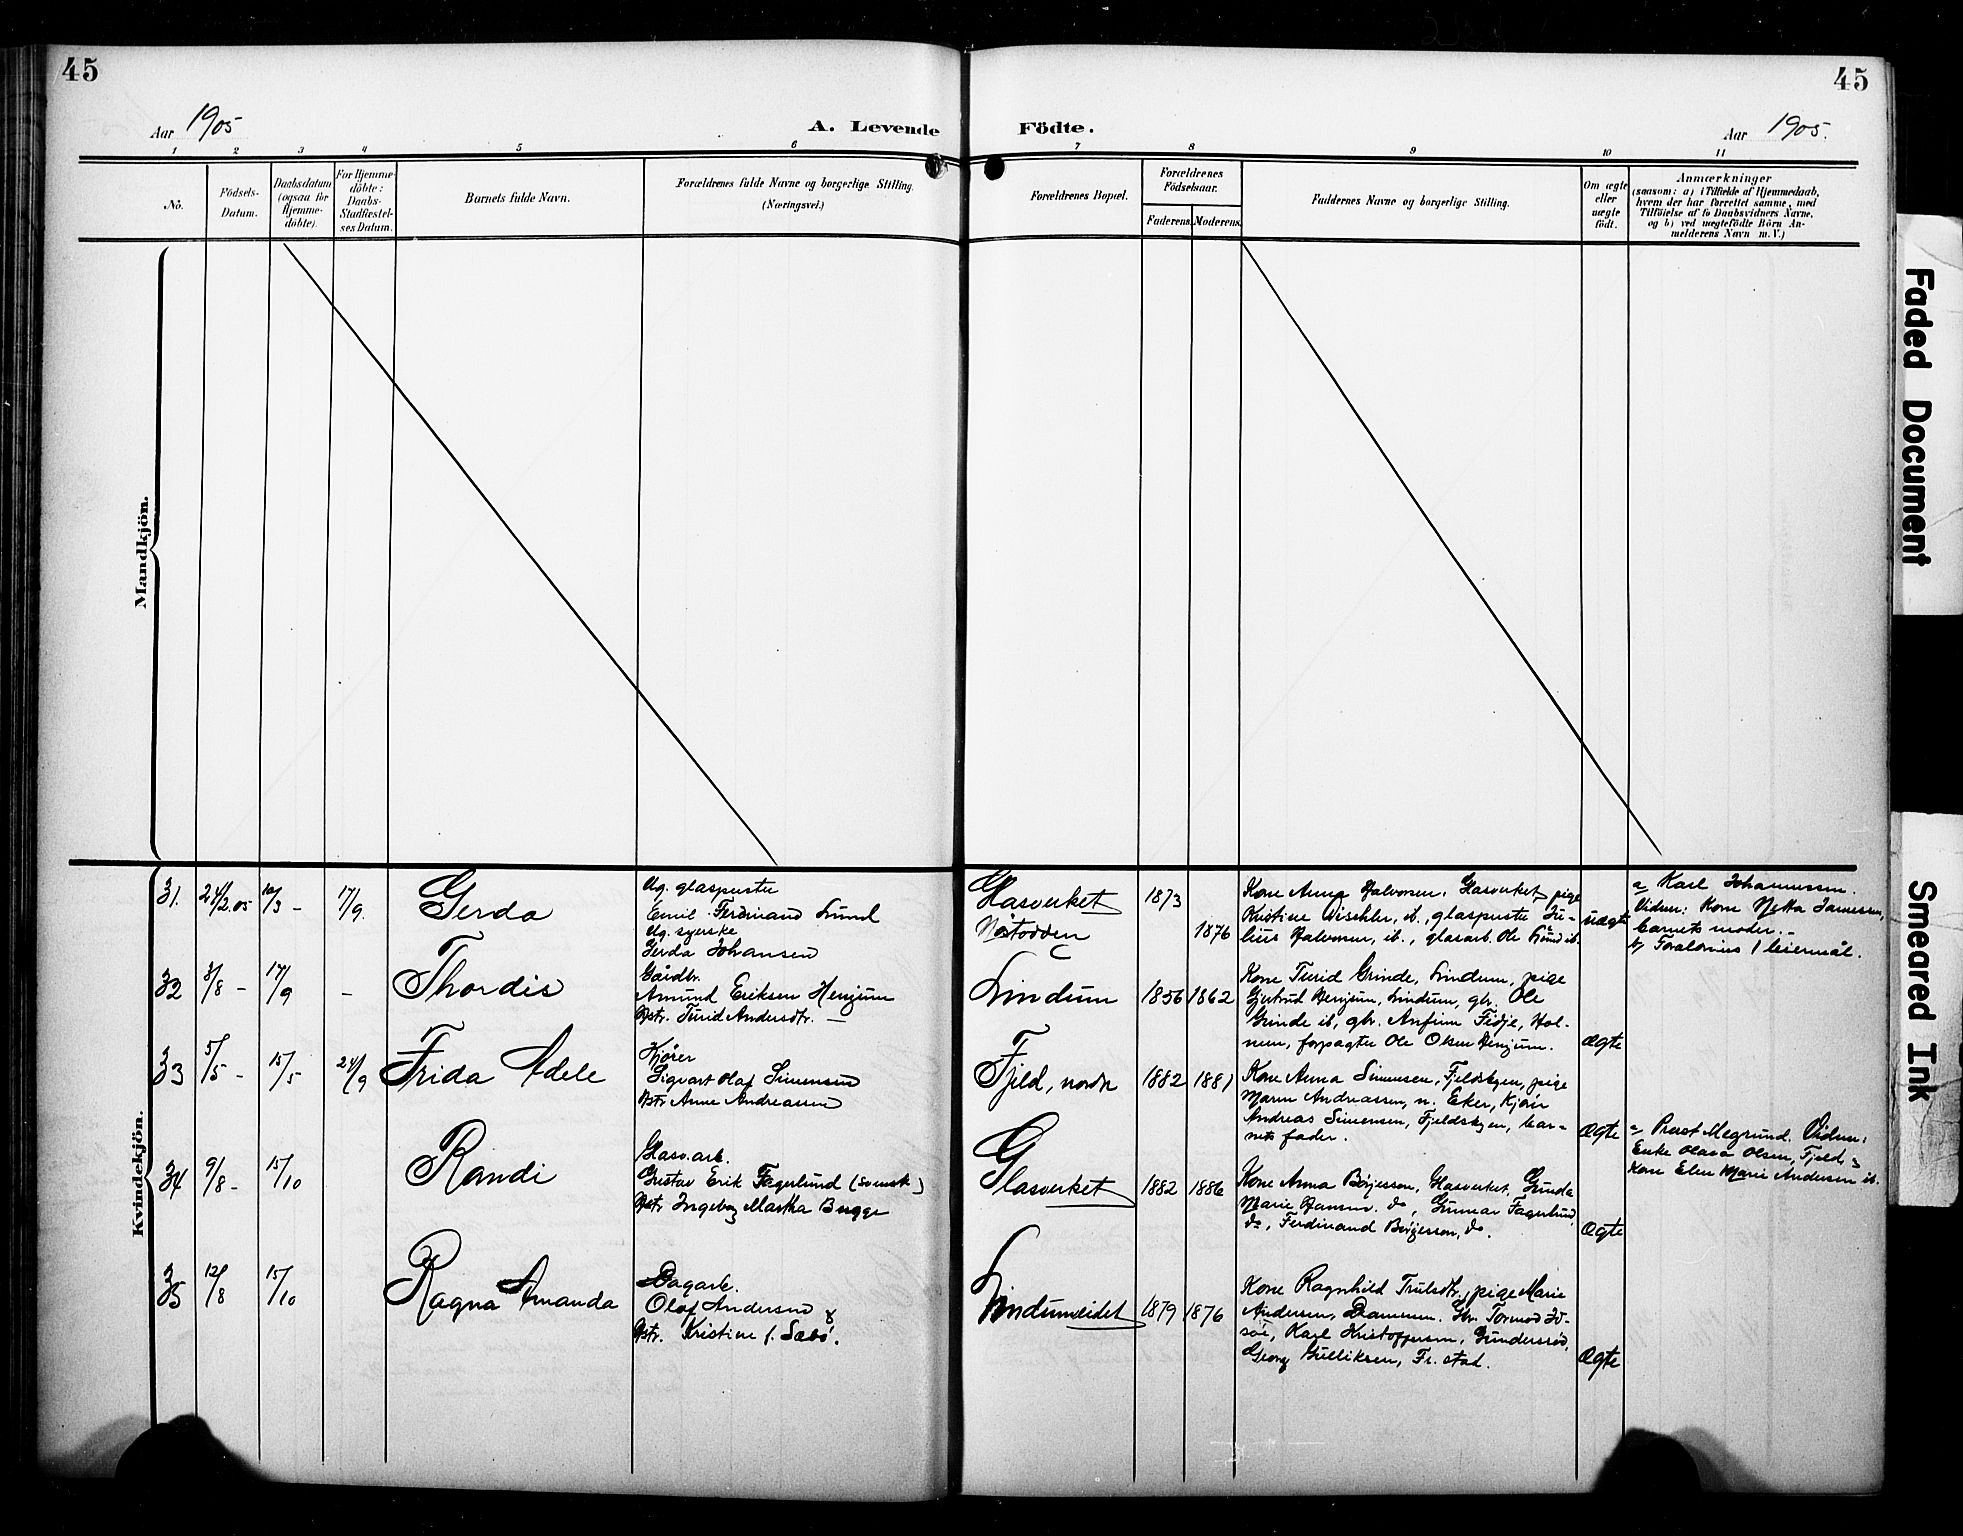 45
45
Aar 1905
A. Levende
Födte.
Aar 1905.
1 2 3 4 5 6 7 8 9 10 11
No.
Födsels-
Datum.
Daabsdatum
(ogsaa for
Hjemme-
döbte).
For Hjemme-
döbte:
Daabs-
Stadfæstel-
ses Datum.
Barnets fulde Navn.
Forældrenes fulde Navne og borgerlige Stilling.
(Næringsvei.)
Forældrenes Bopæl.
Forældrenes
Födselsaar.
Faderens. Moderens.
Faddernes Navne og borgerlige Stilling.
Om ægte
eller
uægte
födt.
Anmærkninger
(saasom: a) i Tilfælde af Hjemmedaab,
hvem der har forrettet samme, med
Tilföielse af to Daabsvidners Navne.
og b) ved uægtefödte Börn An-
melderens Navn m. V.)
Mandkjön.
Kvindekjön.
31. 24/2.05 /3 - 17/9. Gerda
Ug. glaspuster
Emil Ferdinand Lund
Ug. syerske
Gerda Johansen
Glasverket
Nøstodden
1873
1876
Kone Anna Halvorsen, Glasverket, pige
Kristine Wischler, ib., glaspuster Ju-
lius Halvorsen, ib., glasarb. Ole Lund ib.
uægte
a, Karl Johannessen.
Vidner: Kone Netta
barnets moder. -
b, Foraldrenes 1 leiermål.
32 3/8 - 17/9 - Thordis
Gårdbr.
Amund Eriksen Henjum
Hstr. Turid Andersdtr. -
Lindum
1856 1862
Kone Turid Grinde, Lindum, pige
Gjertrud Henjum, Lindum, gbr. Ole
Grinde ib, gbr. Anfinn Fidje, Hol-
men, forpagter Ole Olsen Henjum.
ægte
33 5/5 - 15/5 24/9 Frida Adele
Kjører
Sigvart Olaf Simensen
Hstr Anne Andreassen
Fjeld, nordr
1882 1881
Kone Anna Simensen, Fjeldsbyen, pige
Maren Andreassen, n. Eker, Kjører
Andreas Simensen, Fjeldsbyen, bar-
nets fader.
Ægte
a, Prest Megrund. Vidner:
Enke Olava Olsen, Fjeld, &
Kone Elen Marie Andersen ib.
34 9/8 - 15/10 Randi
Glasv. arb.
Gustav Erik Fagerlund (svensk)
Hstr Ingeborg Martha Bugge
Glasverket
1882 1886
Kone Anna Börjesson, Glasverket, Gunda
Marie Hansen. do, Gunnar Fagerlund,
do, Ferdinand Börjesson, do.
Ægte
35 12/8 15/10 Ragna Amanda
Dagarb.
Olaf Andersen &
Hstr. Kristine f. Sæbö.
Lindumeidet
1879 1876
Kone Ragnhild Trulsdtr, pige Marie
Andersen, Drammen. Gbr. Tormod
Karl Kristoffersen, Gundersrød,
Georg Gulliksen, Fr. stad.
Ægte
Faded Document
Smeared Ink